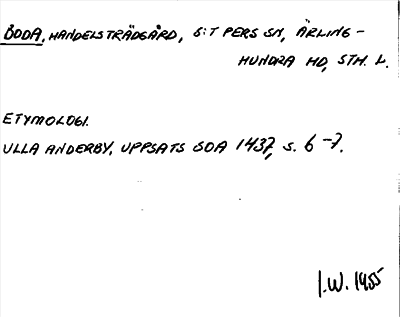 BODA, HANDELSTRÄDGÅRD, S:T PERS SN, ÄRLING-
HUNDRA HD, STH. L.
ETYMOLOGI.
ULLA ANDERBY, UPPSATS SOA 1437, S. 6-7.
I.W. 1955